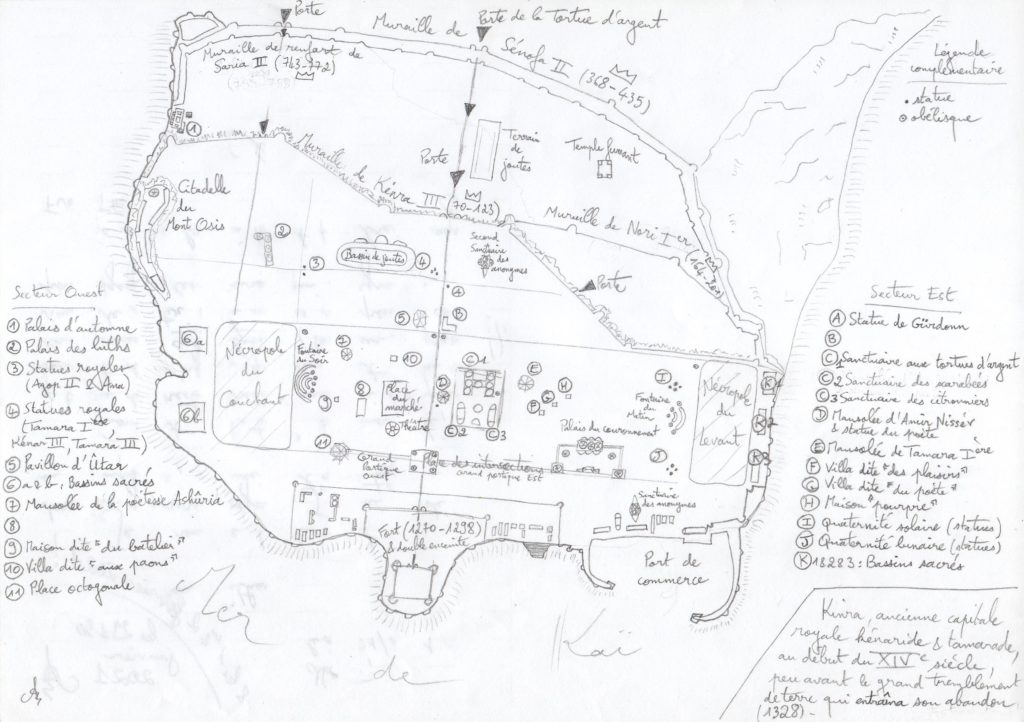 Porte
Muraille de
Porte de la Tortue d'argent
Sénofa II
(368-435)
Muraille de renfort de
Saria III (743-772)
Légende
complémentaire
statue
obélisque
Muraille de Kênra III (70-123)
Porte
Terrain
de
joutes
Temple furant
Muraille de Nori Ier
(164-201)
1
Citadelle
du
Mont Osis
2
3
Bassin de joutes
4
Second
Sanctuaire
des
anonymes
Porte
A
B
5
Secteur Ouest
1 Palais d'automne
2 Palais des luths
3 Statues royales
(Azop II & Ana)
4 Statues royales
(Tamara Ière
Kénar III, Tamara III)
5 Pavillon d'Ûtar
6 a & b, Bassins sacrés
7 Mausolée de la poétesse Ashûria
8
9 Maison dite "du batelier"
10 Villa dite "aux paons"
11 Place octogonale
6a
6b
Nécropole
du
Couchant
Fontaine
du Soir
7
10
9
8
Place
du
marché
Théâtre
11
C 1
D
C2
C3
E
F
G
H
I
Fontaine
du
Matin
J
Nécropole
du
levant
K1
K2
K3
Palais du couronnement
Grand
Portique
Ouest
Place des intersections
Grand portique Est
Sanctuaire
des anonymes
Fort (1270-1298)
à double enceinte
Port de
commerce
Secteur Est
A Statue de Gûrdonn
B
C1 Sanctuaire aux tortues d'argent
C2 Sanctuaire des scarabées
C3 Sanctuaire des citronniers
D Mausolée d'Amir Nissév
& statue du poète
E Mausolée de Tamara Ière
F Villa dite "des plaisirs"
G Villa dite "du poète"
H Maison "pourpre"
I Quaternité solaire (statues)
J Quaternité lunaire (statues)
K 1&2&3 : Bassins sacrés
Mer
de
Kaï
Kinra, ancienne capitale
royale hénaride & tamarade,
au début du XIVe siècle,
peu avant le grand tremblement
de terre qui entraîna son abandon
(1328)-